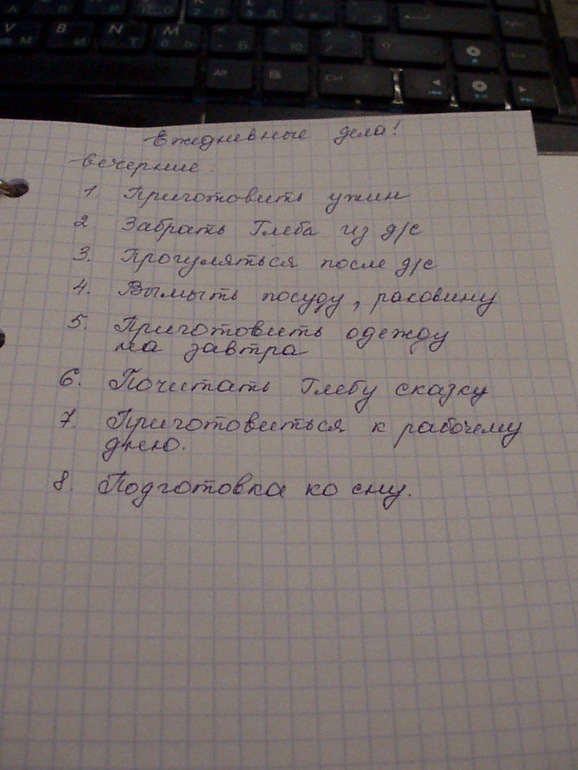 Ежедневные дела!
вечерние:
1 Приготовить ужин
2. Забрать Глеба из д/с
3. Прогуляться после д/с
4. Вымыть посуду, раковину
5. Приготовить одежду
на завтра
6. Почитать Глебу сказку
7. Приготовиться к рабочему
дню.
8. Подготовка ко сну.